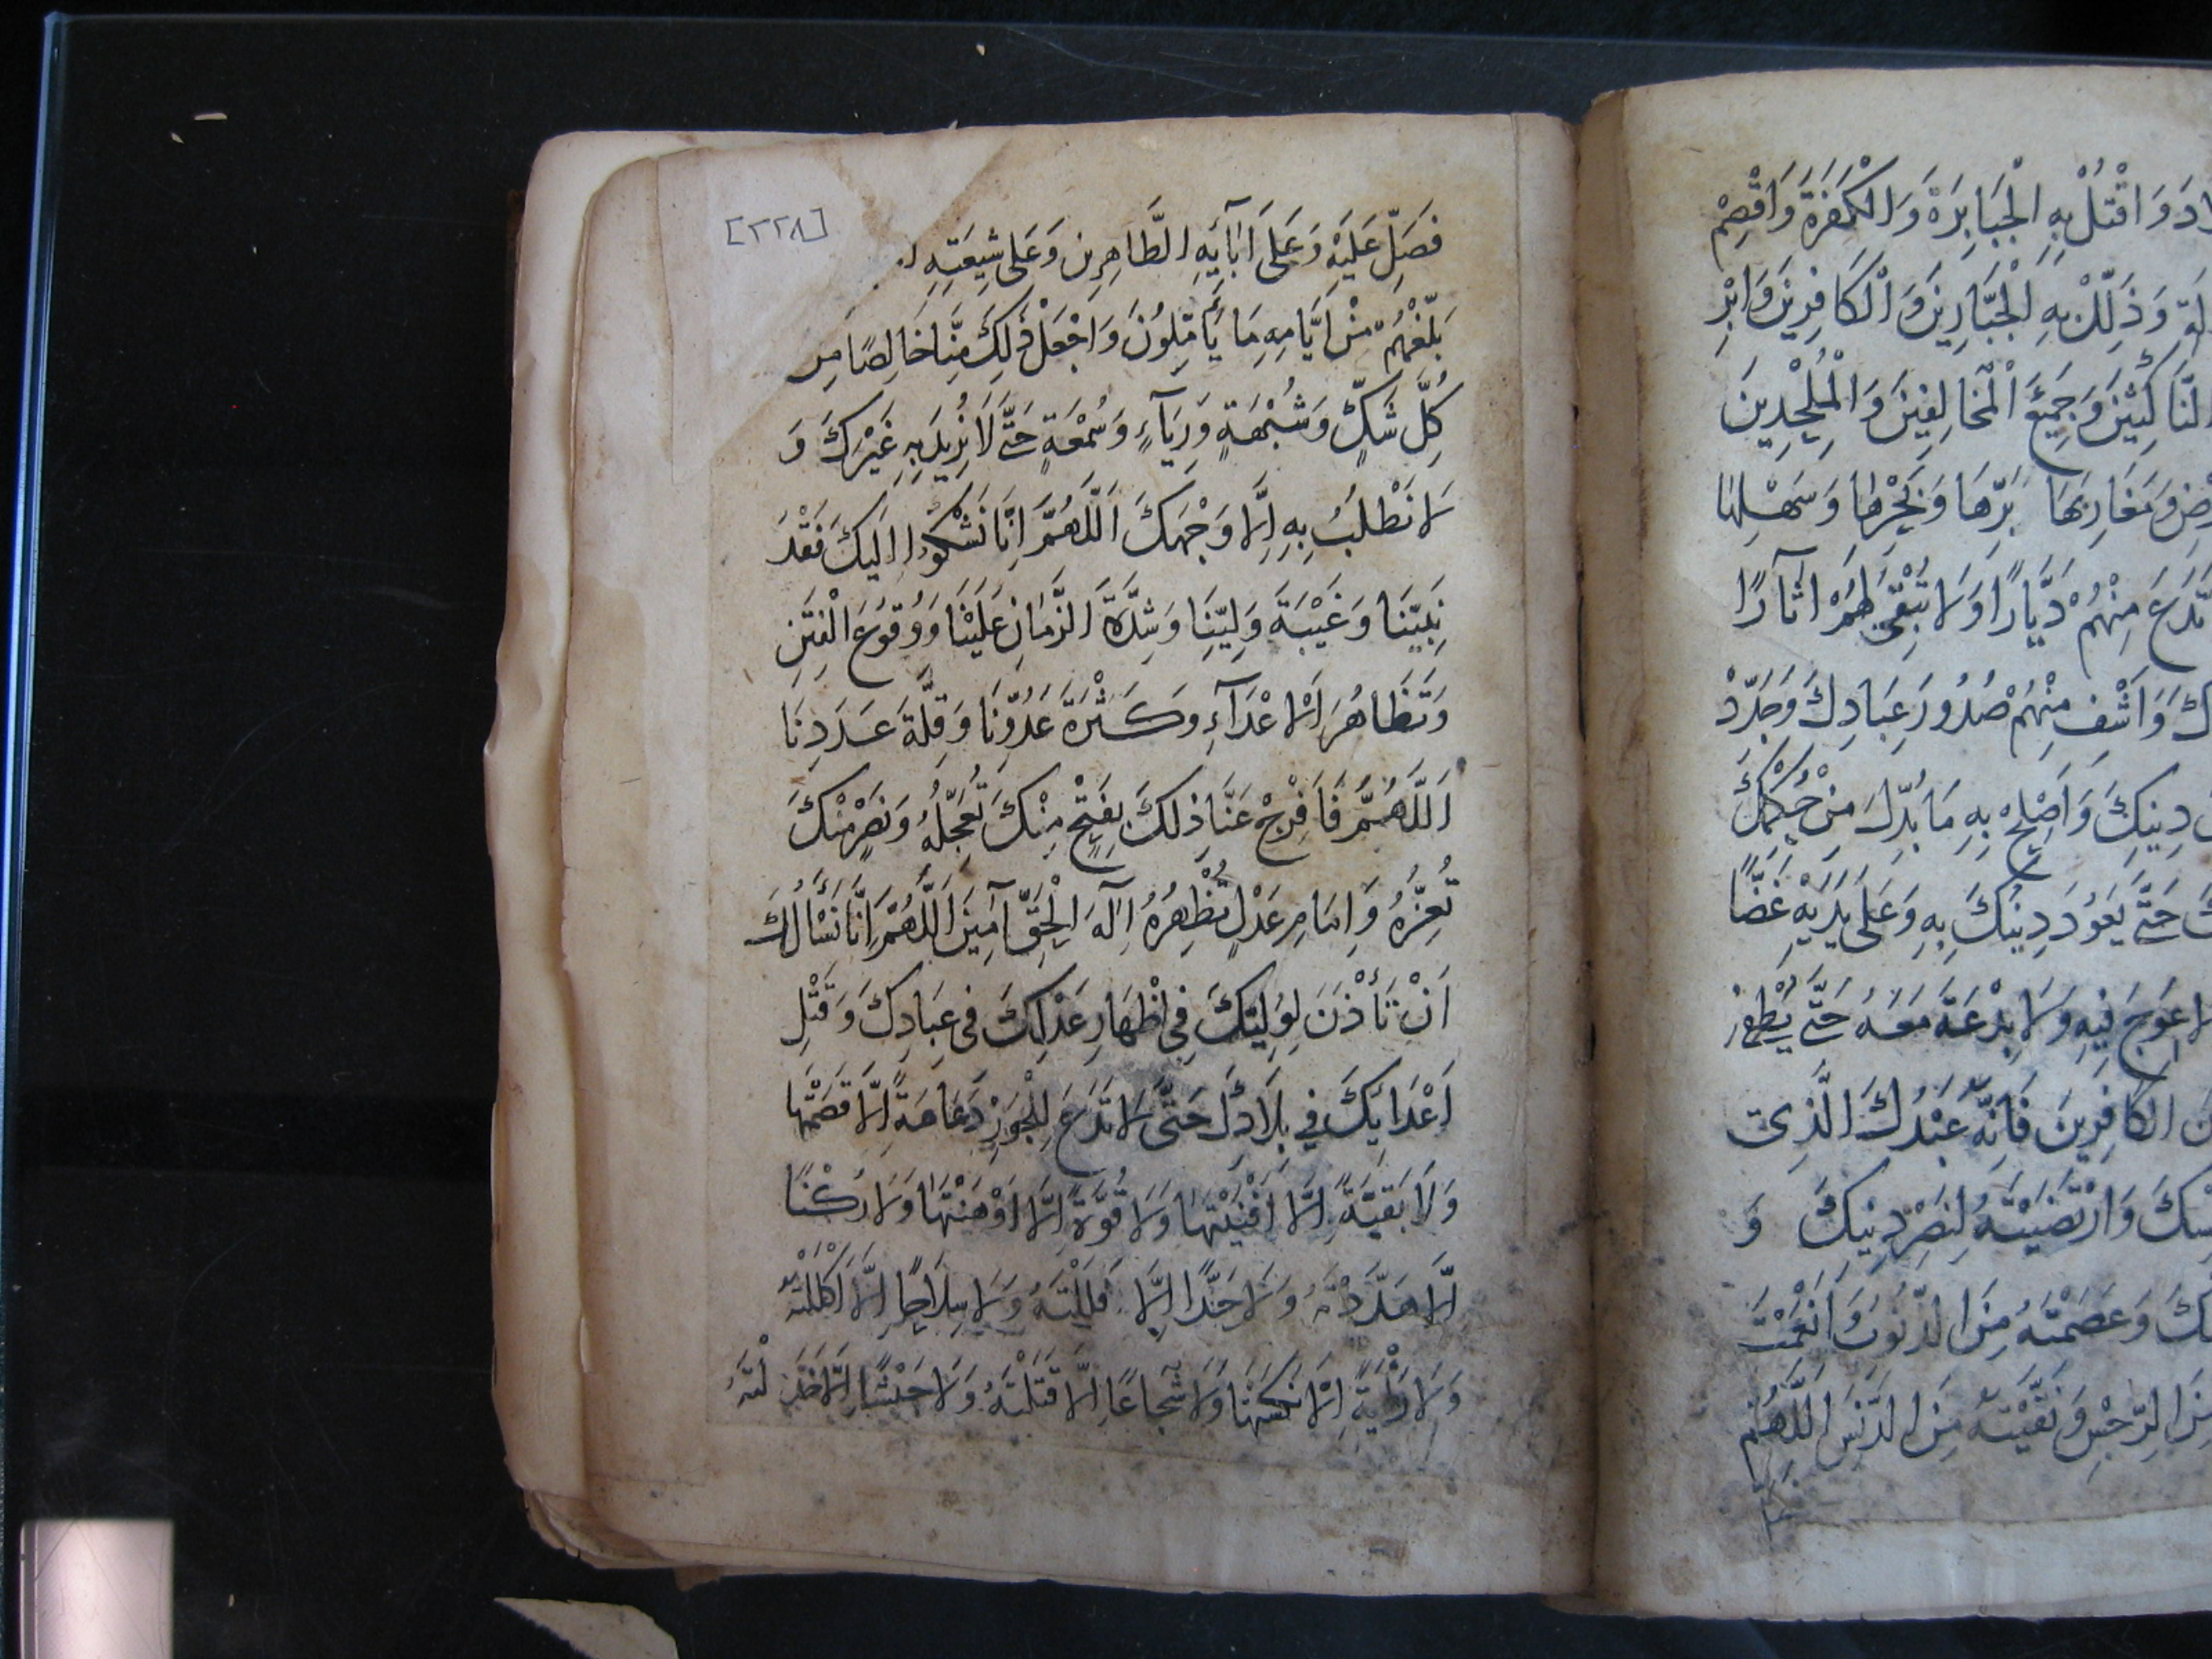 لَادَ وَاقْتُلْ بِهِ الْجَبَابِرَةَ وَالْكَفَرَةَ وَاقْصِمْ
وَذَلِّلْ بِهِ الْجَبَّارِينَ وَالْكَافِرِينَ وَابْرِ
النَّاكِثِينَ وَجَمِيعَ الْمُخَالِفِينَ وَالْمُلْحِدِينَ
وَمَغَارِبِهَا بَرِّهَا وَبَحْرِهَا وَسَهْلِهَا
تَدَعَ مِنْهُمْ دَيَّارًا وَلَا تُبْقِىَ لَهُمْ اٰثَارًا
وَاشْفِ مِنْهُمْ صُدُورَ عِبَادِكَ وَجَدِّدْ
دِينِكَ وَاَصْلِحْ بِهِ مَا بُدِّلَ مِنْ حُكْمِكَ
حَتَّى يَعُودَ دِينُكَ بِهِ وَعَلَى يَدَيْهِ غَضًّا
لَا عِوَجَ فِيهِ وَلَا بِدْعَةَ مَعَهُ حَتَّى
الْكَافِرِينَ فَاِنَّهُ عَبْدُكَ الَّذِى
وَارْتَضَيْتَهُ لِنَصْرِ دِينِكَ وَ
وَعَصَمْتَهُ مِنَ الذُّنُوبِ وَاَنْعَمْتَ
مِنَ الرِّجْسِ وَنَقَّيْتَهُ مِنَ الدَّنَسِ اَللَّهُمَّ
[٢٢٨]
فَصَلِّ عَلَيْهِ وَعَلَى اٰبَآئِهِ الطَّاهِرِين وَعَلَى شِيعَتِهِ
بَلِّغْهُمْ مِنْ اَيَّامِهِ مَا يَأْمَلُونَ وَاجْعَلْ ذٰلِكَ مِنَّا خَالِصًا مِن
كُلِّ شَكٍّ وَشُبْهَةٍ وَرِيَآءٍ وَسُمْعَةٍ حَتَّى لَا نُرِيدَ بِهِ غَيْرَكَ وَ
لَا نَطْلُبُ بِهِ اِلَّا وَجْهَكَ اَللَّهُمَّ اِنَّا نَشْكُوا اِلَيْكَ فَقْدَ
نَبِيِّنَا وَغَيْبَةَ وَلِيِّنَا وَشِدَّةَ الزَّمَانِ عَلَيْنَا وَوُقُوعَ الْفِتَنِ
وَتَظَاهُرَ الْاَعْدَآءِ وَكَثْرَةَ عَدُوِّنَا وَقِلَّةَ عَدَدِنَا
اَللَّهُمَّ فَافْرِجْ عَنَّا ذٰلِكَ بِفَتْحٍ مِنْكَ تُعَجِّلُهُ وَنَصْرٍ مِنْكَ
تُعِزُّهُ وَاِمَامِ عَدْلٍ تُظْهِرُهُ اِلٰهَ الْحَقِّ آمِينَ اَللَّهُمَّ اِنَّا نَسْأَلُكَ
اَنْ تَأْذَنَ لِوَلِيِّكَ فِى اِظْهَارِ عَدْلِكَ فِى عِبَادِكَ وَقَتْلِ
اَعْدَايِكَ فِي بِلَادِكَ حَتَّى لَا تَدَعَ لِلْجَوْرِ دَعَامَةً اِلَّا قَصَمْتَهَا
وَلَا بَقِيَّةً اِلَّا اَفْنَيْتَهَا وَلَا قُوَّةً اِلَّا اَوْهَنْتَهَا وَلَا رُكْنًا
اِلَّا هَدَدْتَهُ وَلَا حَدًّا اِلَّا فَلَلْتَهُ وَلَا سِلَاحًا اِلَّا اَكْلَلْتَهُ
وَلَا رَايَةً اِلَّا نَكَسْتَهَا وَلَا شُجَاعًا اِلَّا قَتَلْتَهُ وَلَا جَيْشًا اِلَّا خَذَلْتَهُ